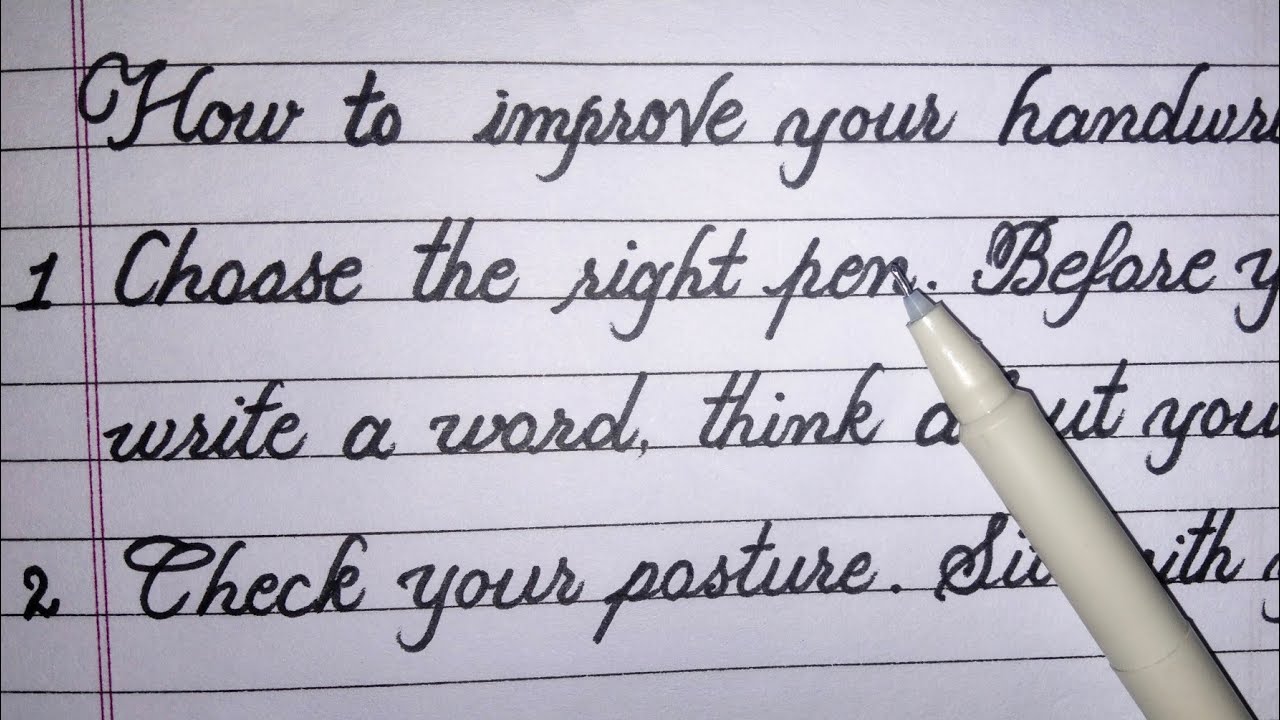 How to improve your handwri
1 Choose the right pen. Before y
write a word, think about you
2 Check your posture. Sit with y